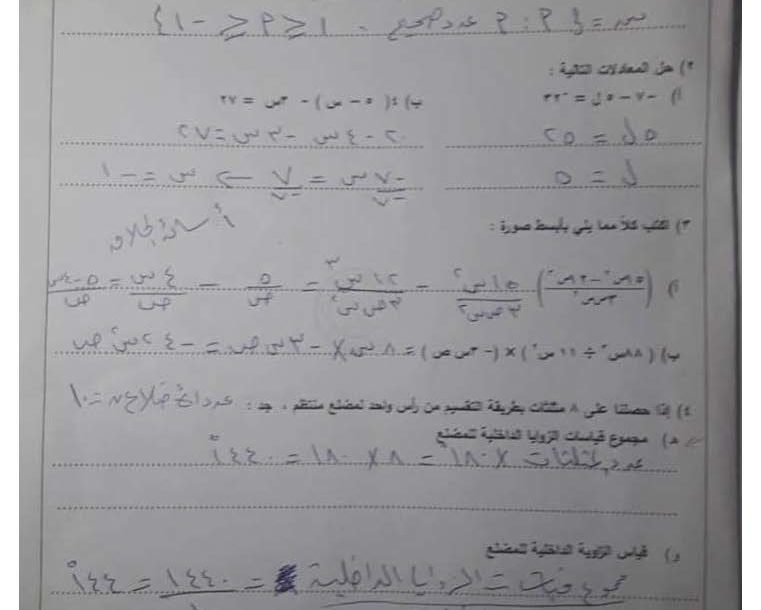 س = { م : م عدد صحيح ، ١ ≥ م ≥ -٤١ }
٢) حل المعادلات التالية :
أ) -٧ - ٥ ل = -٣٢
ب) ٤( ٥ - س ) - ٣س = ٢٧
٥ ل = ٢٥
٢٠ - ٤ س - ٣ س = ٢٧
ل = ٥
-٧ س / -٧ = ٧ / -٧ ← س = -١
٣) اكتب كلاً مما يلي بأبسط صورة :
أ) (١٥س² - ١٢س³ / ٣س ص²) = ١٥س² / ٣ص س² - ١٢س³ / ٣ص س² = ٥ / ص - ٤س / ص = ٥-٤س / ص
ب) ( ٨٨س³ ÷ ١١ س² ) × (-٣س ص ) = ٨ س × -٣ س ص = -٢٤ س² ص
٤) إذا حصلنا على ٨ مثلثات بطريقة التقسيم من رأس واحد لمضلع منتظم ، جد : عدد أضلاع ن = ١٠
ه) مجموع قياسات الزوايا الداخلية للمضلع
عدد المثلثات × ١٨٠° = ٨ × ١٨٠ = ١٤٤٠°
و) قياس الزاوية الداخلية للمضلع
مجموع قياسات الزوايا الداخلية = ١٤٤٠ = ١٤٤°